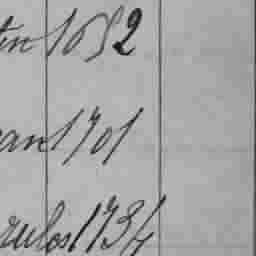 tin 1692
an 1701
rulos 1734